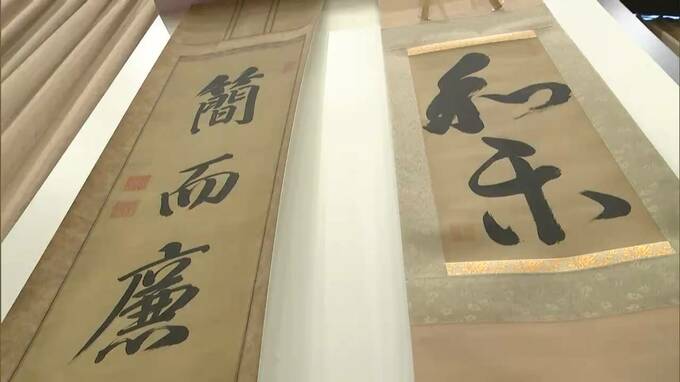 和乐
簡而廉